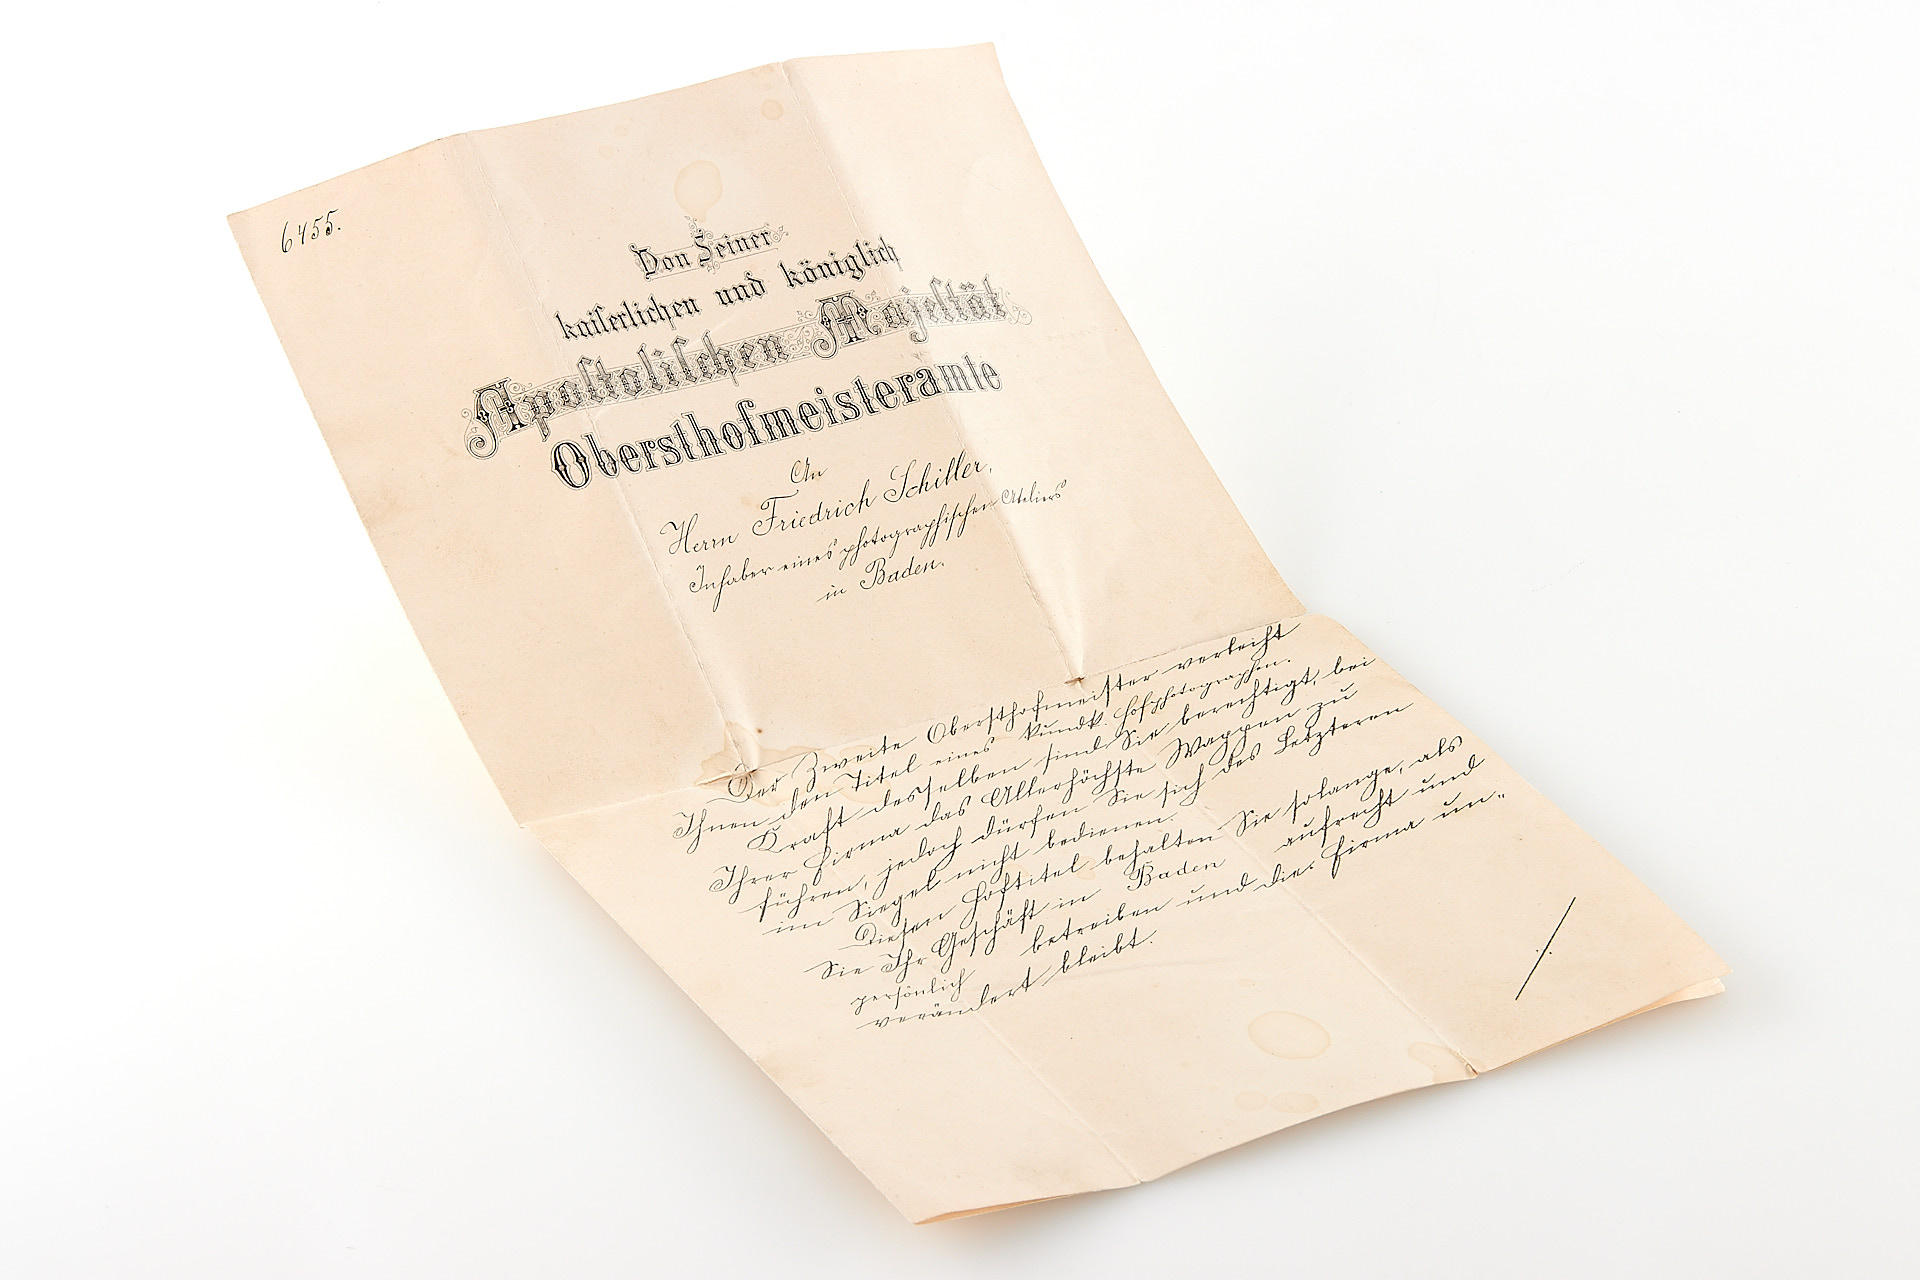 6455.
Von Seiner
kaiserlichen und königlich
Apostolischen Majestät
Obersthofmeisteramte
An
Herrn Friedrich Schiller,
Inhaber eines photographischen Ateliers
in Baden.
Der Zweite Obersthofmeister verleiht
Ihnen den Titel eines k. und k. Hofphotographen.
Kraft desselben sind Sie berechtigt, bei
Ihrer Firma das Allerhöchste Wappen zu
führen, jedoch dürfen Sie sich des Letzteren
im Siegel nicht bedienen.
Diesen Hoftitel behalten Sie solange, als
Sie Ihr Geschäft in Baden aufrecht und
persönlich betreiben und die Firma un-
verändert bleibt.